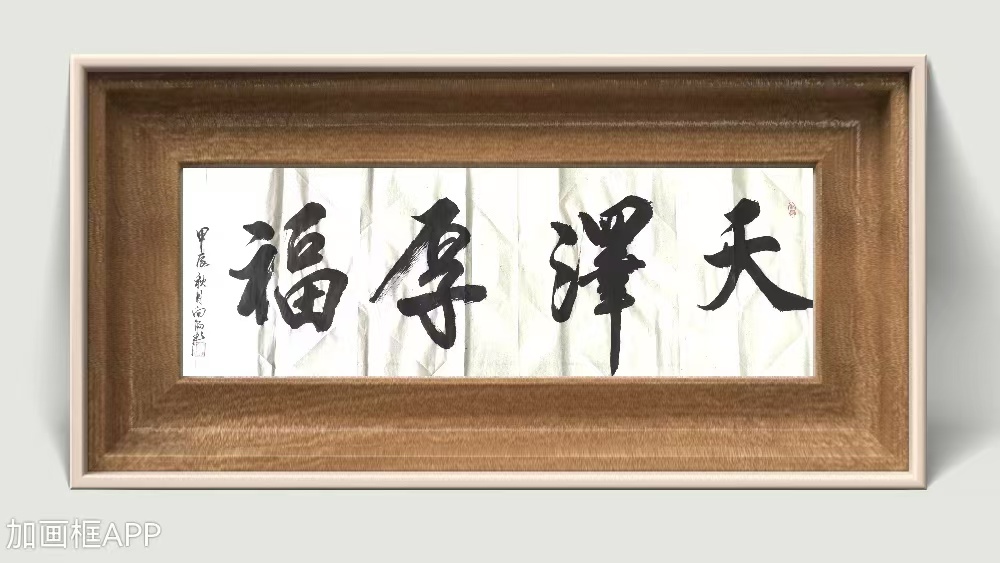 天澤厚福
甲辰秋月
加画框APP